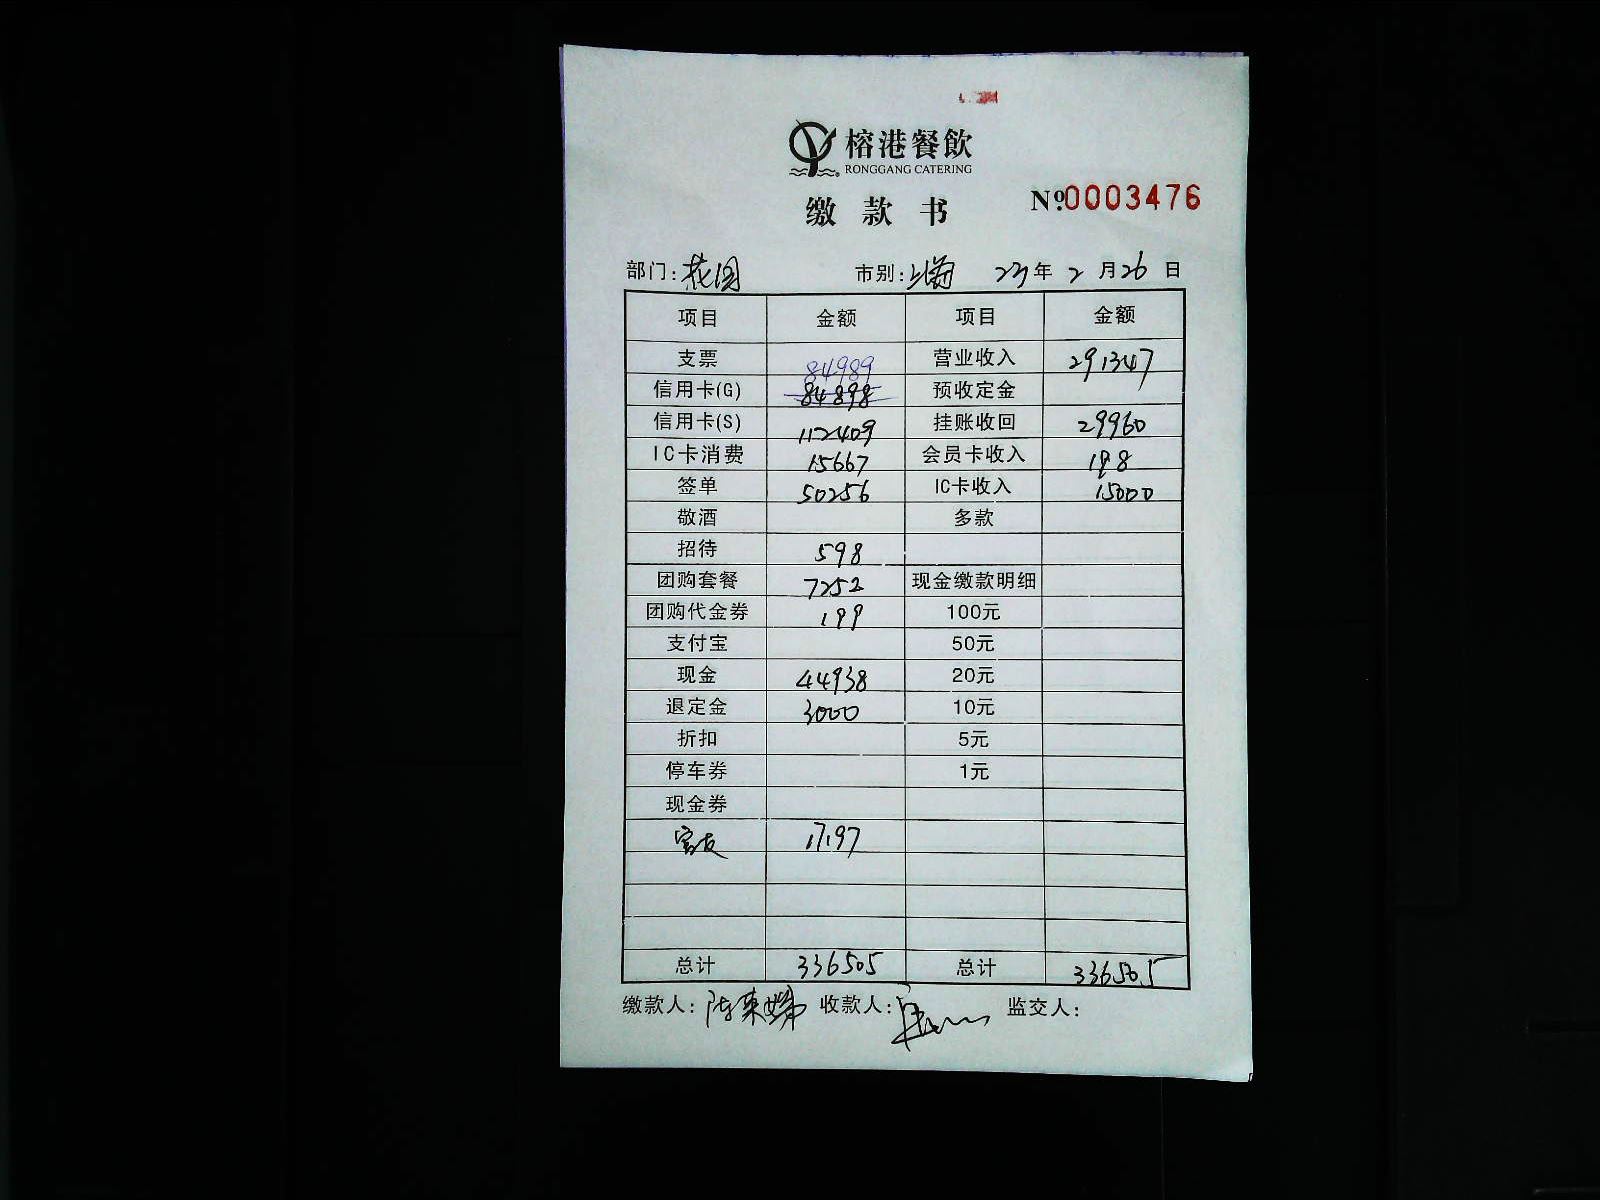 榕港餐飲
RONGGANG CATERING
缴款书 №0003476
部门:花园 市别: 23年2月26日
项目 金额 项目 金额
支票 84989 营业收入 291347
信用卡(G) 84898 预收定金
信用卡(S) 112409 挂账收回 29960
IC卡消费 15667 会员卡收入 198
签单 50256 IC卡收入 15000
敬酒 多款
招待 598
团购套餐 7252 现金缴款明细
团购代金券 199 100元
支付宝 50元
现金 44938 20元
退定金 3000 10元
折扣 5元
停车券 1元
现金券
17197
总计 336505 总计 336505
缴款人:陈来娣 收款人: 监交人: